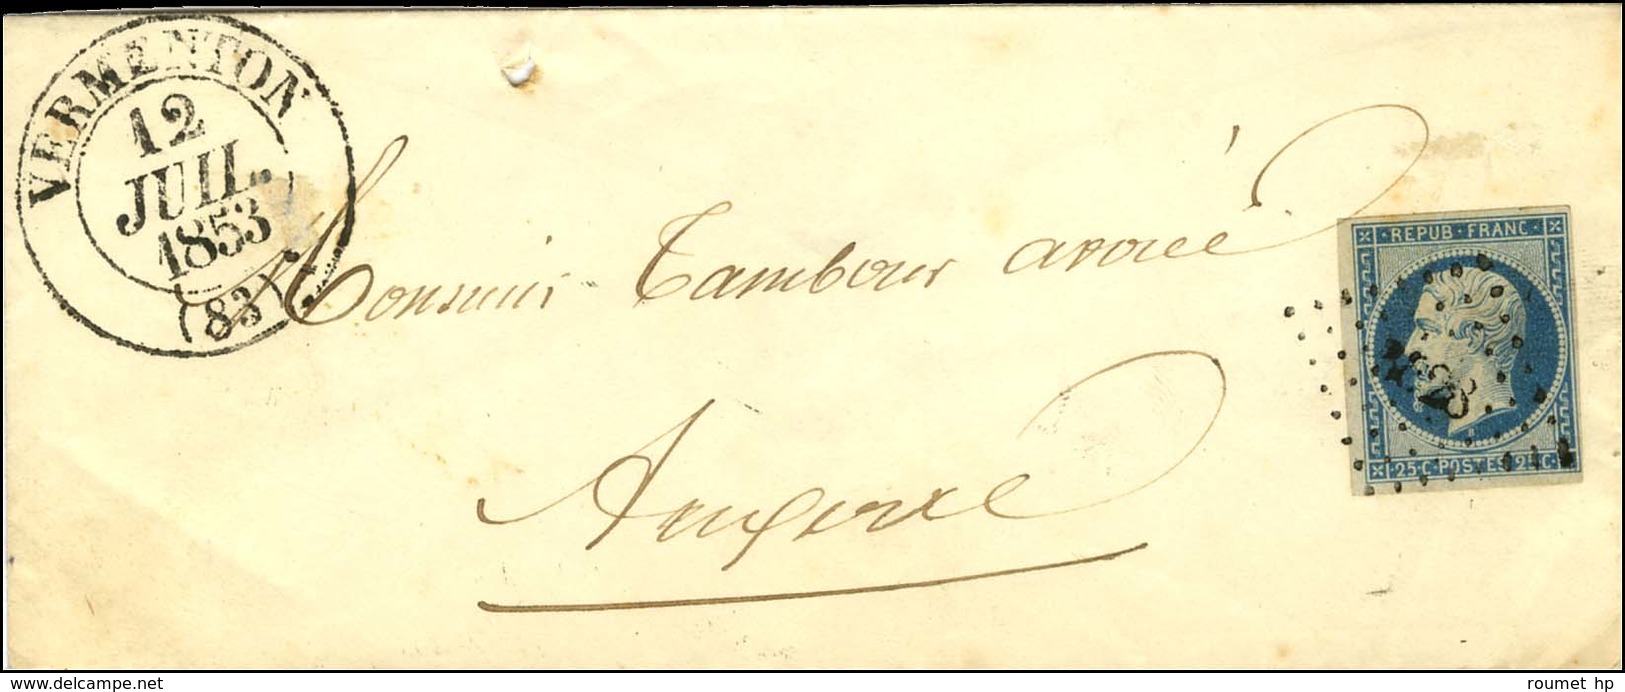 VERMENTON
12
JUIL.
1853
(83)
Monsieur Tambour avoué
Auxerre
REPUB FRANC
25 C POSTES 25 C
www.delcampe.net
roumet hp